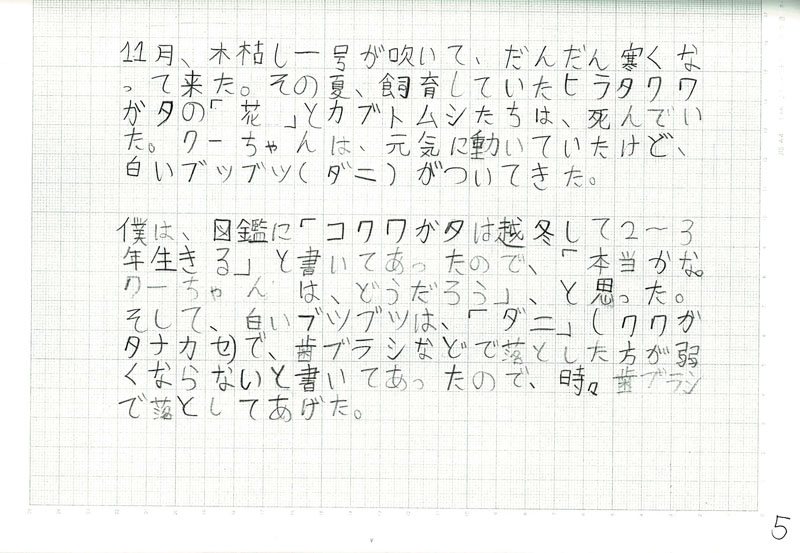 11月、木枯し一号が吹いて、だんだん寒くな
って来た。その夏、飼育していたヒラタクワ
ガタの「花」とカブトムシたちは、死んでい
た。クーちゃんは、元気に動いていたけど、
白いブツブツ(ダニ)がついてきた。
僕は、図鑑に「コクワガタは越冬して2〜3
年生きる」と書いてあったので、「本当かな。
クーちゃんは、どうだろう」、と思った。
そして、白いブツブツは、「ダニ」(クワガ
タナカセ)で、歯ブラシなどで落とした方が弱
くならないと書いてあったので、時々歯ブラシ
で落としてあげた。
5